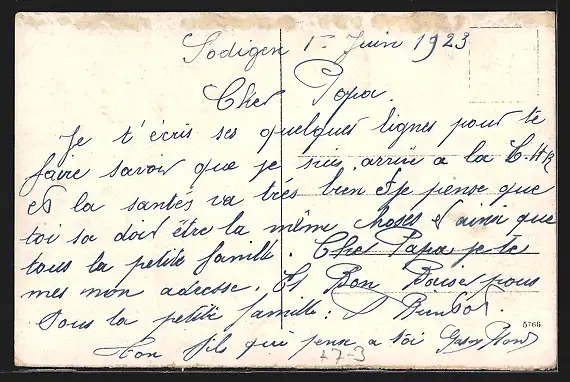 Sodigen 1r Juin 1923
Cher Papa
Je t'écris ses quelques lignes pour te
faire savoir que je suis arrive a la C.H.R
et la santés va trés bien et je pense que
toi sa doit être la même choses et ainsi que
tous la petite famille. Cher Papa je te
mes mon adresse. Et Bon Baiser pous
tous la petite famille:
5766
Ton fils qui pense a toi
+7-3